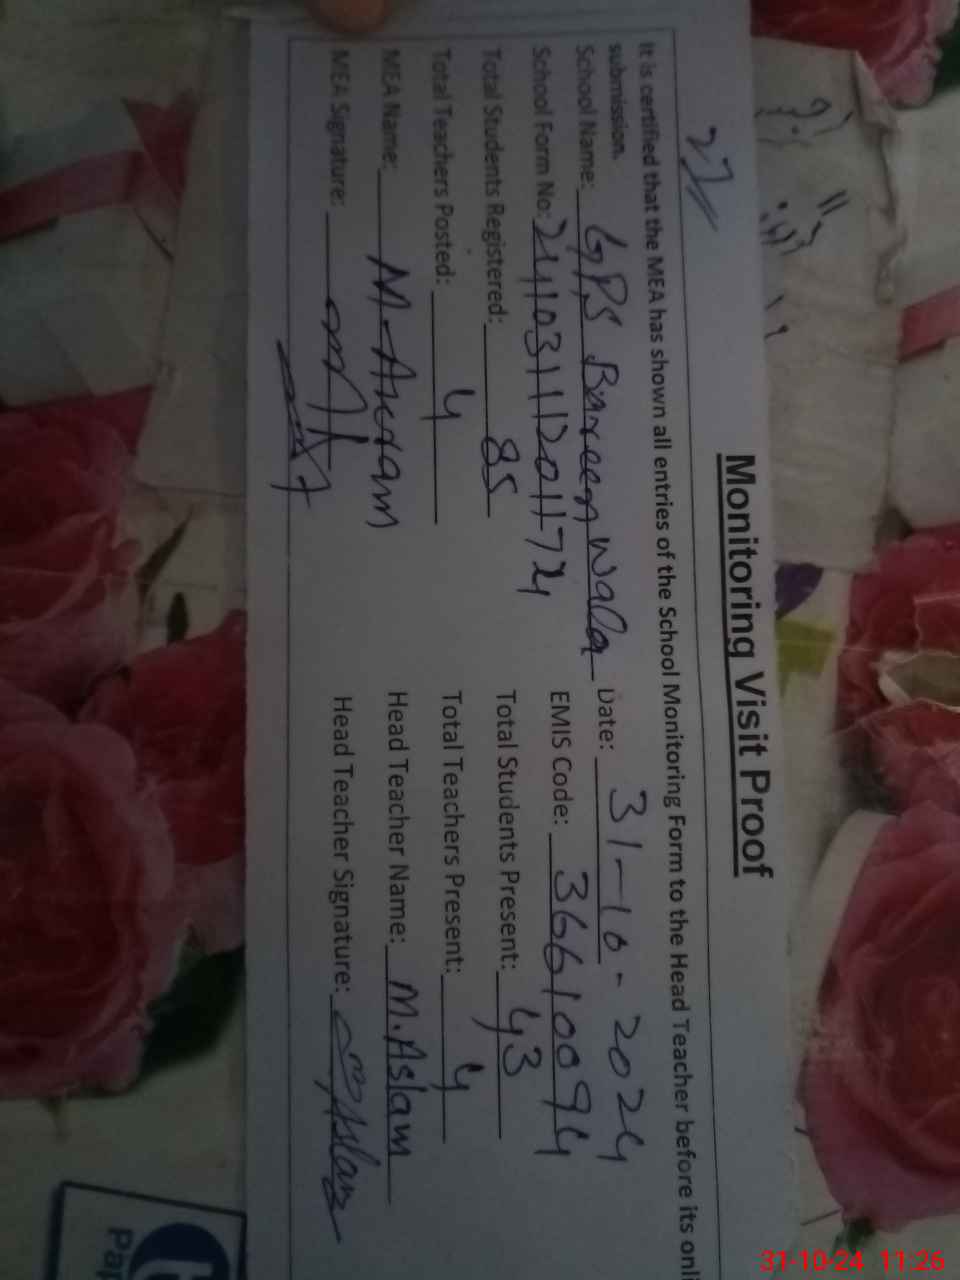 Monitoring Visit Proof
It is certified that the MEA has shown all entries of the School Monitoring Form to the Head Teacher before its onli
submission.
School Name: GPS Bareen wala Date: 31-10-2024
School Form No: EMIS Code: 36610094
Total Students Registered: 85 Total Students Present: 43
Total Teachers Posted: 4 Total Teachers Present: 4
MEA Name: M-Akram Head Teacher Name: M.Aslam
MEA Signature: Head Teacher Signature: Aslam
Pap
31-10-24 11:26